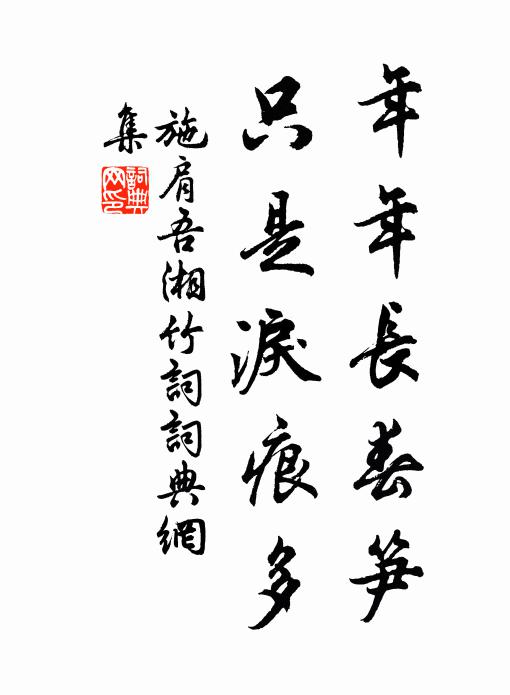 年年長春笋
只是淚痕多
施肩吾湘竹詞詞典網
集
詞典
网印